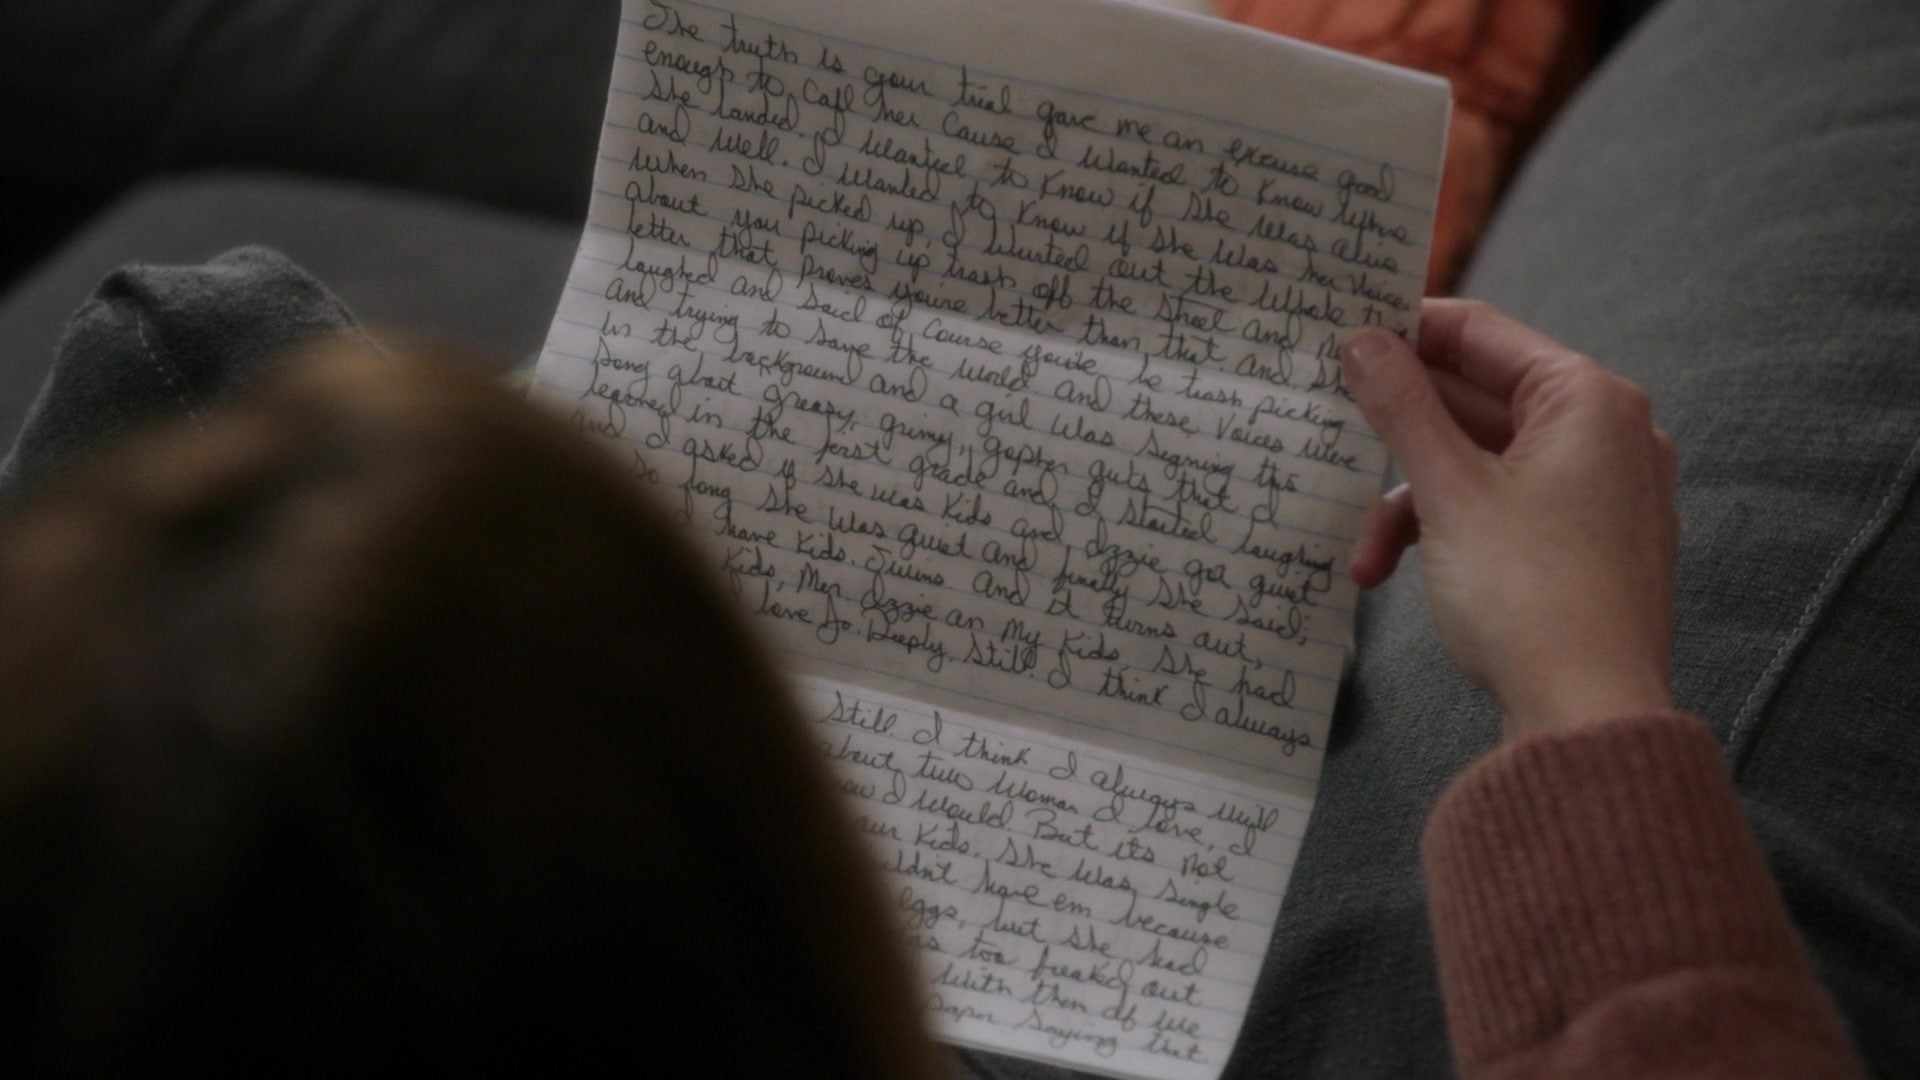 The truth is your trial gave me an excuse good
enough to call her cause I wanted to know where
she landed. I wanted to know if she was alive
and well. I wanted to know if she was her voice
when she picked up, I blurted out the whole
about you picking up trash off the street and
letter that proves you're better than that. And she
laughed and said of course you'd be trash picking
and trying to save the world and these voices were
in the background and a girl was signing this
song about greasy, grimy, gopher guts that I
learned in the first grade and I started laughing
and I asked if she was kids and Izzie got quiet
so long she was quiet and finally she said,
have kids. Twins And it turns out,
kids, Mer. Izzie an my kids. She had
love Jo. Deeply. Still. I think I always
Still I think I always will
about two woman I love, I
I would But its not
our kids. She was single
have em because
eggs, but she had
too freaked out
with them if we
saying that